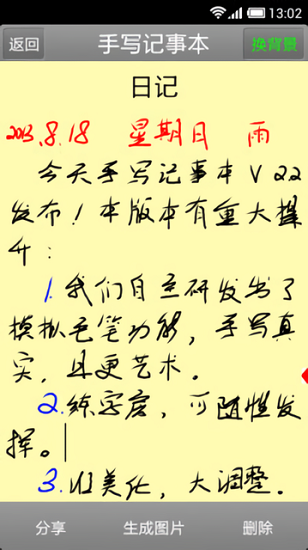 13:02
返回 手写记事本 换背景
日记
2013.8.18 星期日 雨
今天手写记事本V2.2
发布!本版本有重大提
升:
1.我们自主研发了
模拟毛笔功能,手写真
实,且更艺术。
2.练字度,可随性发
挥。
3.UI美化,大调整。
分享 生成图片 删除